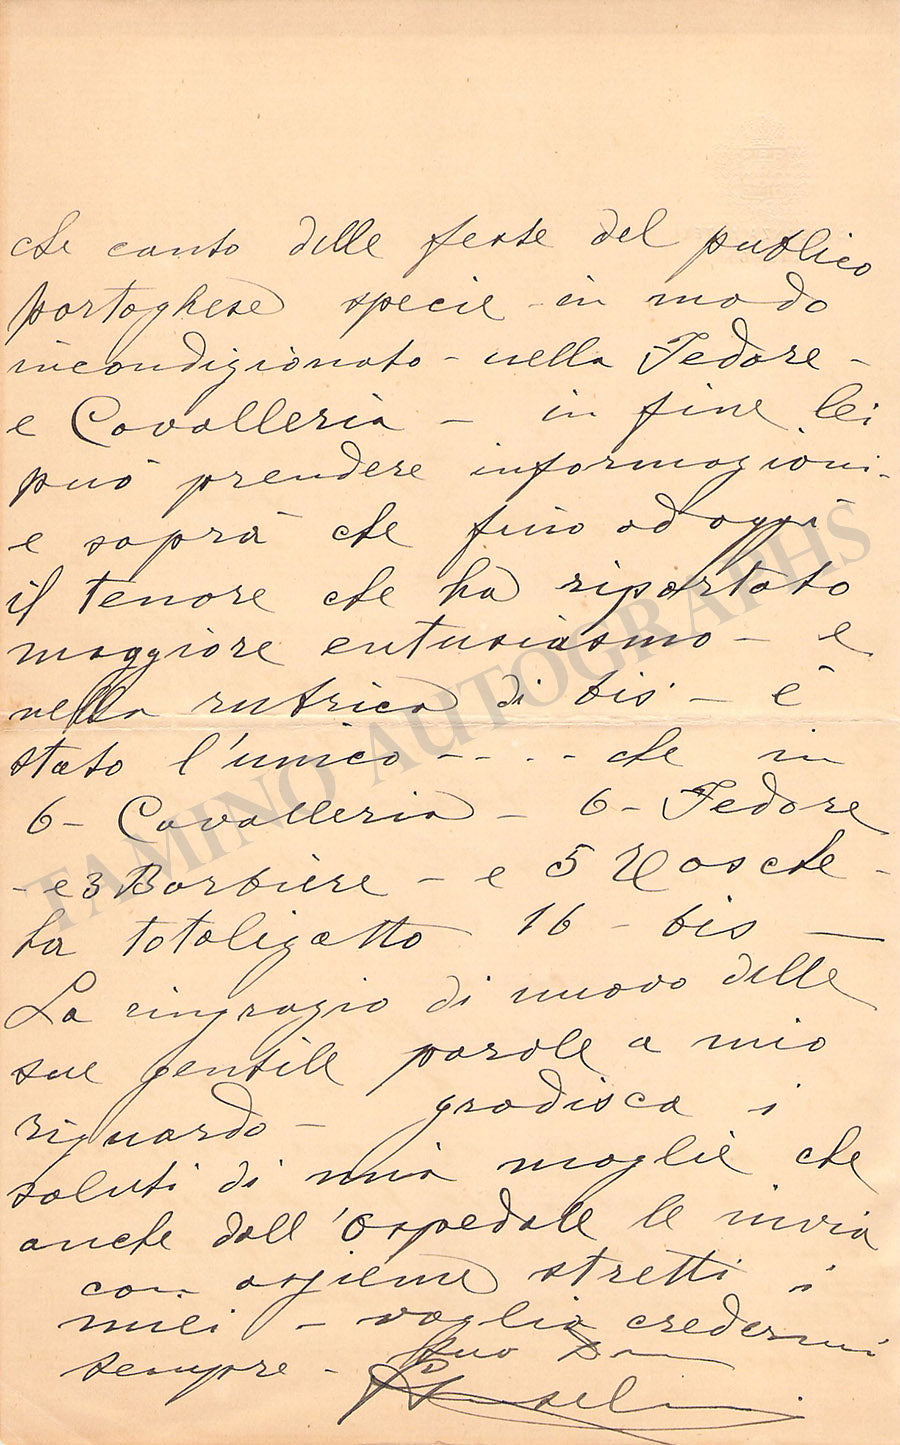 che canto delle feste del publico
portoghese specie in modo
incondizionato - nella Fedore -
e Cavalleria - in fine lei
può prendere informazioni -
e saprà che fino ad oggi
il tenore che ha riportato
maggiore entusiasmo - e
nella rubrica di bis - è
stato l'unico - - - - che in
6 - Cavalleria - 6 - Fedore
- e 3 Barbiere - e 5 Tosche -
ha totalizatto 16 - bis —
La ringrazio di nuovo delle
sue gentile parole a mio
riguardo - gradisca i
saluti di mia moglie che
anche dall'Ospedale le invia
con assieme stretti i
miei - voglia credermi
sempre - Suo
Anselmi
TAMINO AUTOGRAPHS